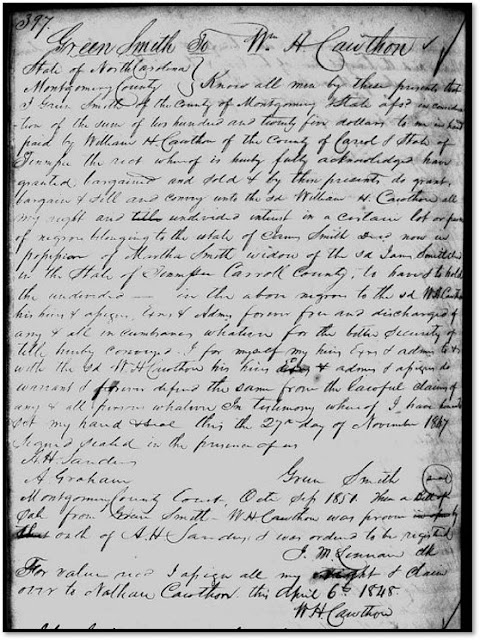 397
Green Smith To Wm H Cawthon &
State of North Carolina
Montgomery County } Know all men by these presents that
I Green Smith of the County of Montgomery State afsd in consideration
of the sum of two hundred and twenty five dollars to me in hand
paid by William H. Cawthon of the County of Carrol & State of
Tennessee the rect wherof is hereby fully acknowledged have
granted bargained and sold & by these presents do grant
bargain & sell and convey unto the sd William H. Cawthon all
my right and title undivided interest in a certain lot or
of negroes belonging to the estate of Smith Decd now in
possession of Martha Smith widow of the sd Smith Decd
in the State of Carroll County, to have & to hold
the undivided — in the above negroes to the sd WH Cawthon
his heirs & assigns, & Admrs forever free and discharged of
any & all incumbrances whatever for the better security of
title hereby conveyed. I for myself my heirs & admrs to &
with the sd WH Cawthon his heirs & admrs & assigns do
warrant & forever defend the same from the lawful claims of
any & all persons whatever In testimony wherof I have
set my hand & seal this the 27th day of November 1847
Signed sealed in the presence of us
A.H. Sanders
A Graham Green Smith seal
Montgomery County Court, Octr 1850. Then a Bill of
Sale from Green Smith - WH Cawthon was proven
oath of A.H. Sanders & was ordered to be registered
J. McLennan clk
For value recd I assign all my right & claim
over to Nathan Cawthon this April 6th 1848.
WH Cawthon